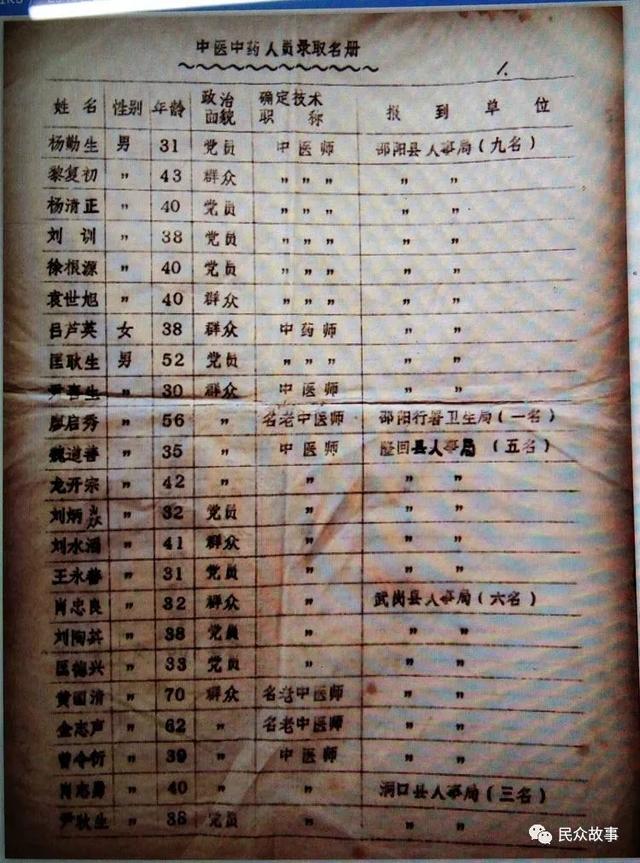 中医中药人员录取名册
1.
姓名 性别 年龄 政治面貌 确定技术职称 报到单位
杨勤生 男 31 党员 中医师 邵阳县人事局（九名）
黎复初 〃 43 群众 〃 〃 〃 〃 〃
杨清正 〃 40 党员 〃 〃 〃 〃 〃
刘训 〃 38 党员 〃 〃 〃 〃 〃
徐根源 〃 40 党员 〃 〃 〃 〃 〃
袁世旭 〃 40 群众 〃 〃 〃 〃 〃
吕芦英 女 38 群众 中药师 〃 〃
匡耿生 男 52 党员 〃 〃 〃 〃 〃
尹喜生 〃 30 群众 中医师 〃 〃
廖启秀 〃 56 〃 名老中医师 邵阳行署卫生局（一名）
魏道善 〃 35 〃 中医师 隆回县人事局（五名）
龙开宗 〃 42 〃 〃 〃 〃
刘炳焱 〃 32 党员 〃 〃 〃
刘水涵 〃 41 群众 〃 〃 〃
王永善 〃 31 党员 〃 〃 〃
肖忠良 〃 32 群众 〃 武岗县人事局（六名）
刘陶其 〃 38 党员 〃 〃 〃
匡德兴 〃 33 党员 〃 〃 〃
黄国清 〃 70 群众 名老中医师 〃 〃
金志声 〃 62 〃 名老中医师 〃 〃
曾令衍 〃 39 〃 中医师 〃 〃
肖志 〃 40 〃 〃 洞口县人事局（三名）
尹耿生 〃 38 党员 〃 〃 〃
民众故事